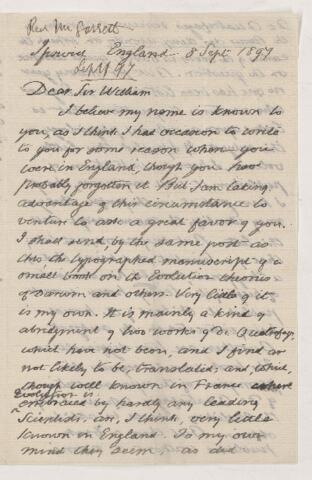 Rev Mr Garrett
Ipswich England 8 Sept. 1897
Sept 8/97
Dear Sir William
I believe my name is known to
you, as I think I had occasion to write
to you for some reason when you
were in England, though you have
probably forgotten it. But I am taking
advantage of this circumstance to
venture to ask a great favor of you.
I shall send, by the same post as
this the typographed manuscript of a
small book on the Evolution theories
of Darwin and others. Very little of it
is my own. It is mainly a kind of
abridgment of two works of De Quatrefages
which have not been, and I find are
not likely to be, translated, and which,
though well known in France where
Evolution is
embraced by hardly any leading
Scientists, are, I think, very little
known in England. To my own
mind they seem, as did